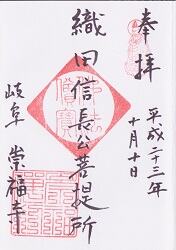 奉拝
平成二十三年
十月十日
織田信長公菩提所
岐阜
崇福寺